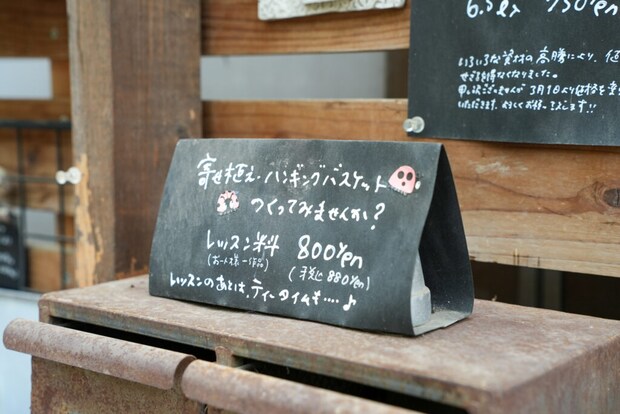 6.5ℓ入 750yen
いろいろな資材の高騰により、価
せざるを得なくなりました。
申し訳ございませんが 3月1日より価格を
いただきます。よろしくお願い致します!!
寄せ植え・ハンギングバスケット
つくってみませんか?
レッスン料 800yen
(お一人様一作品) (税込880yen)
レッスンのあとは、ティータイムも....♪